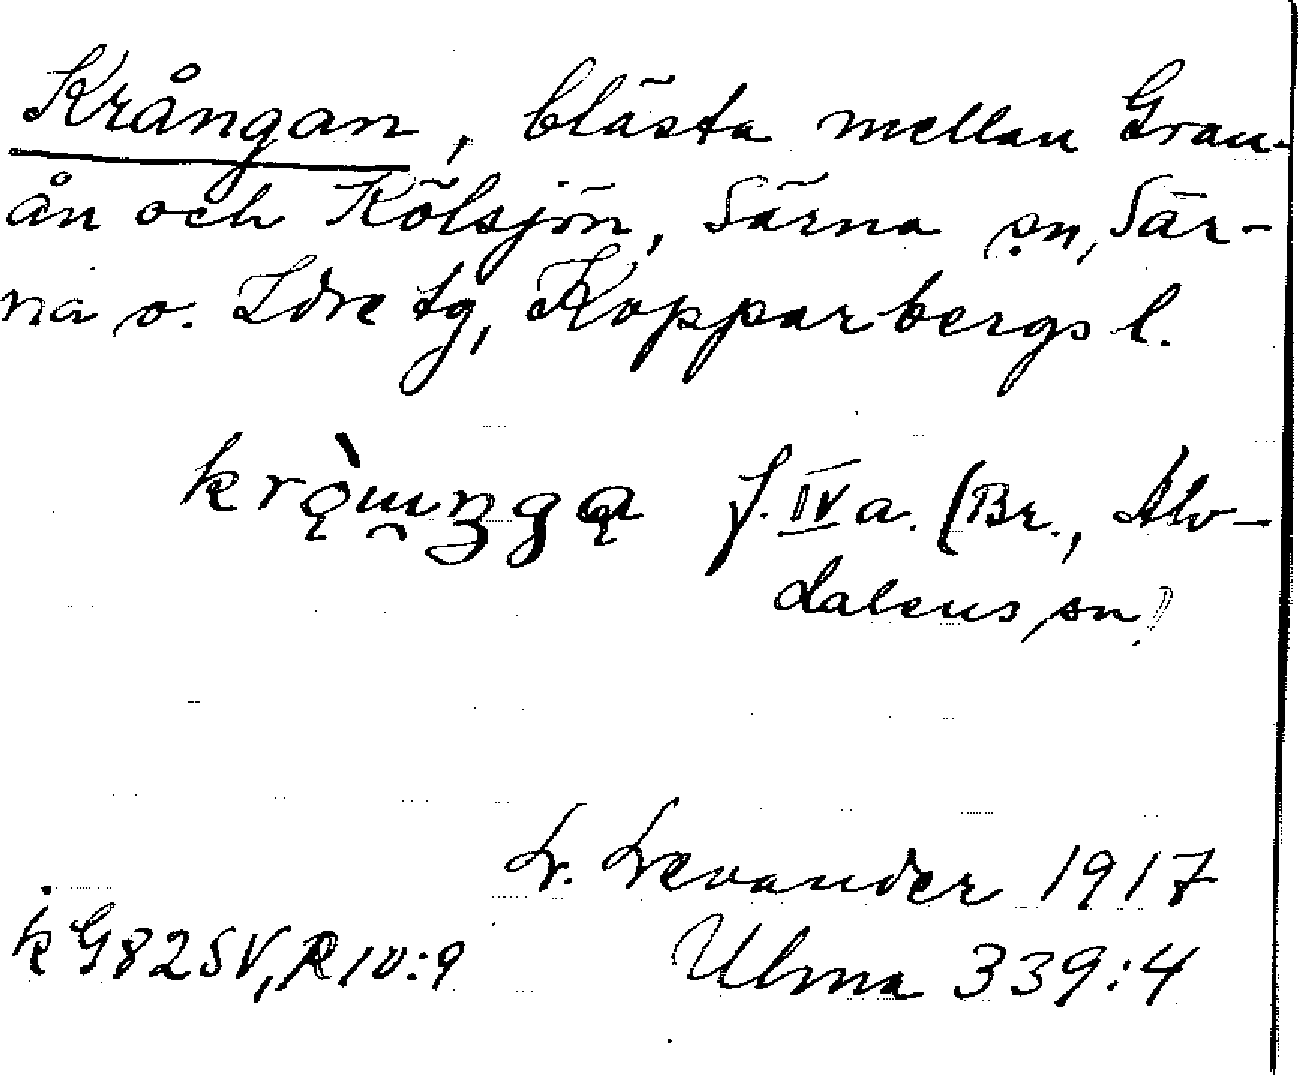 Krångan, blästa mellan Gran-
ån och Kölsjön, Särna sn, Sär-
na o. Idre tg, Kopparbergs l.
f. IV a. (Br., Älv-
dalens sn)
L. Levander 1917
k G82SV, R10:9 Ulma 339:4